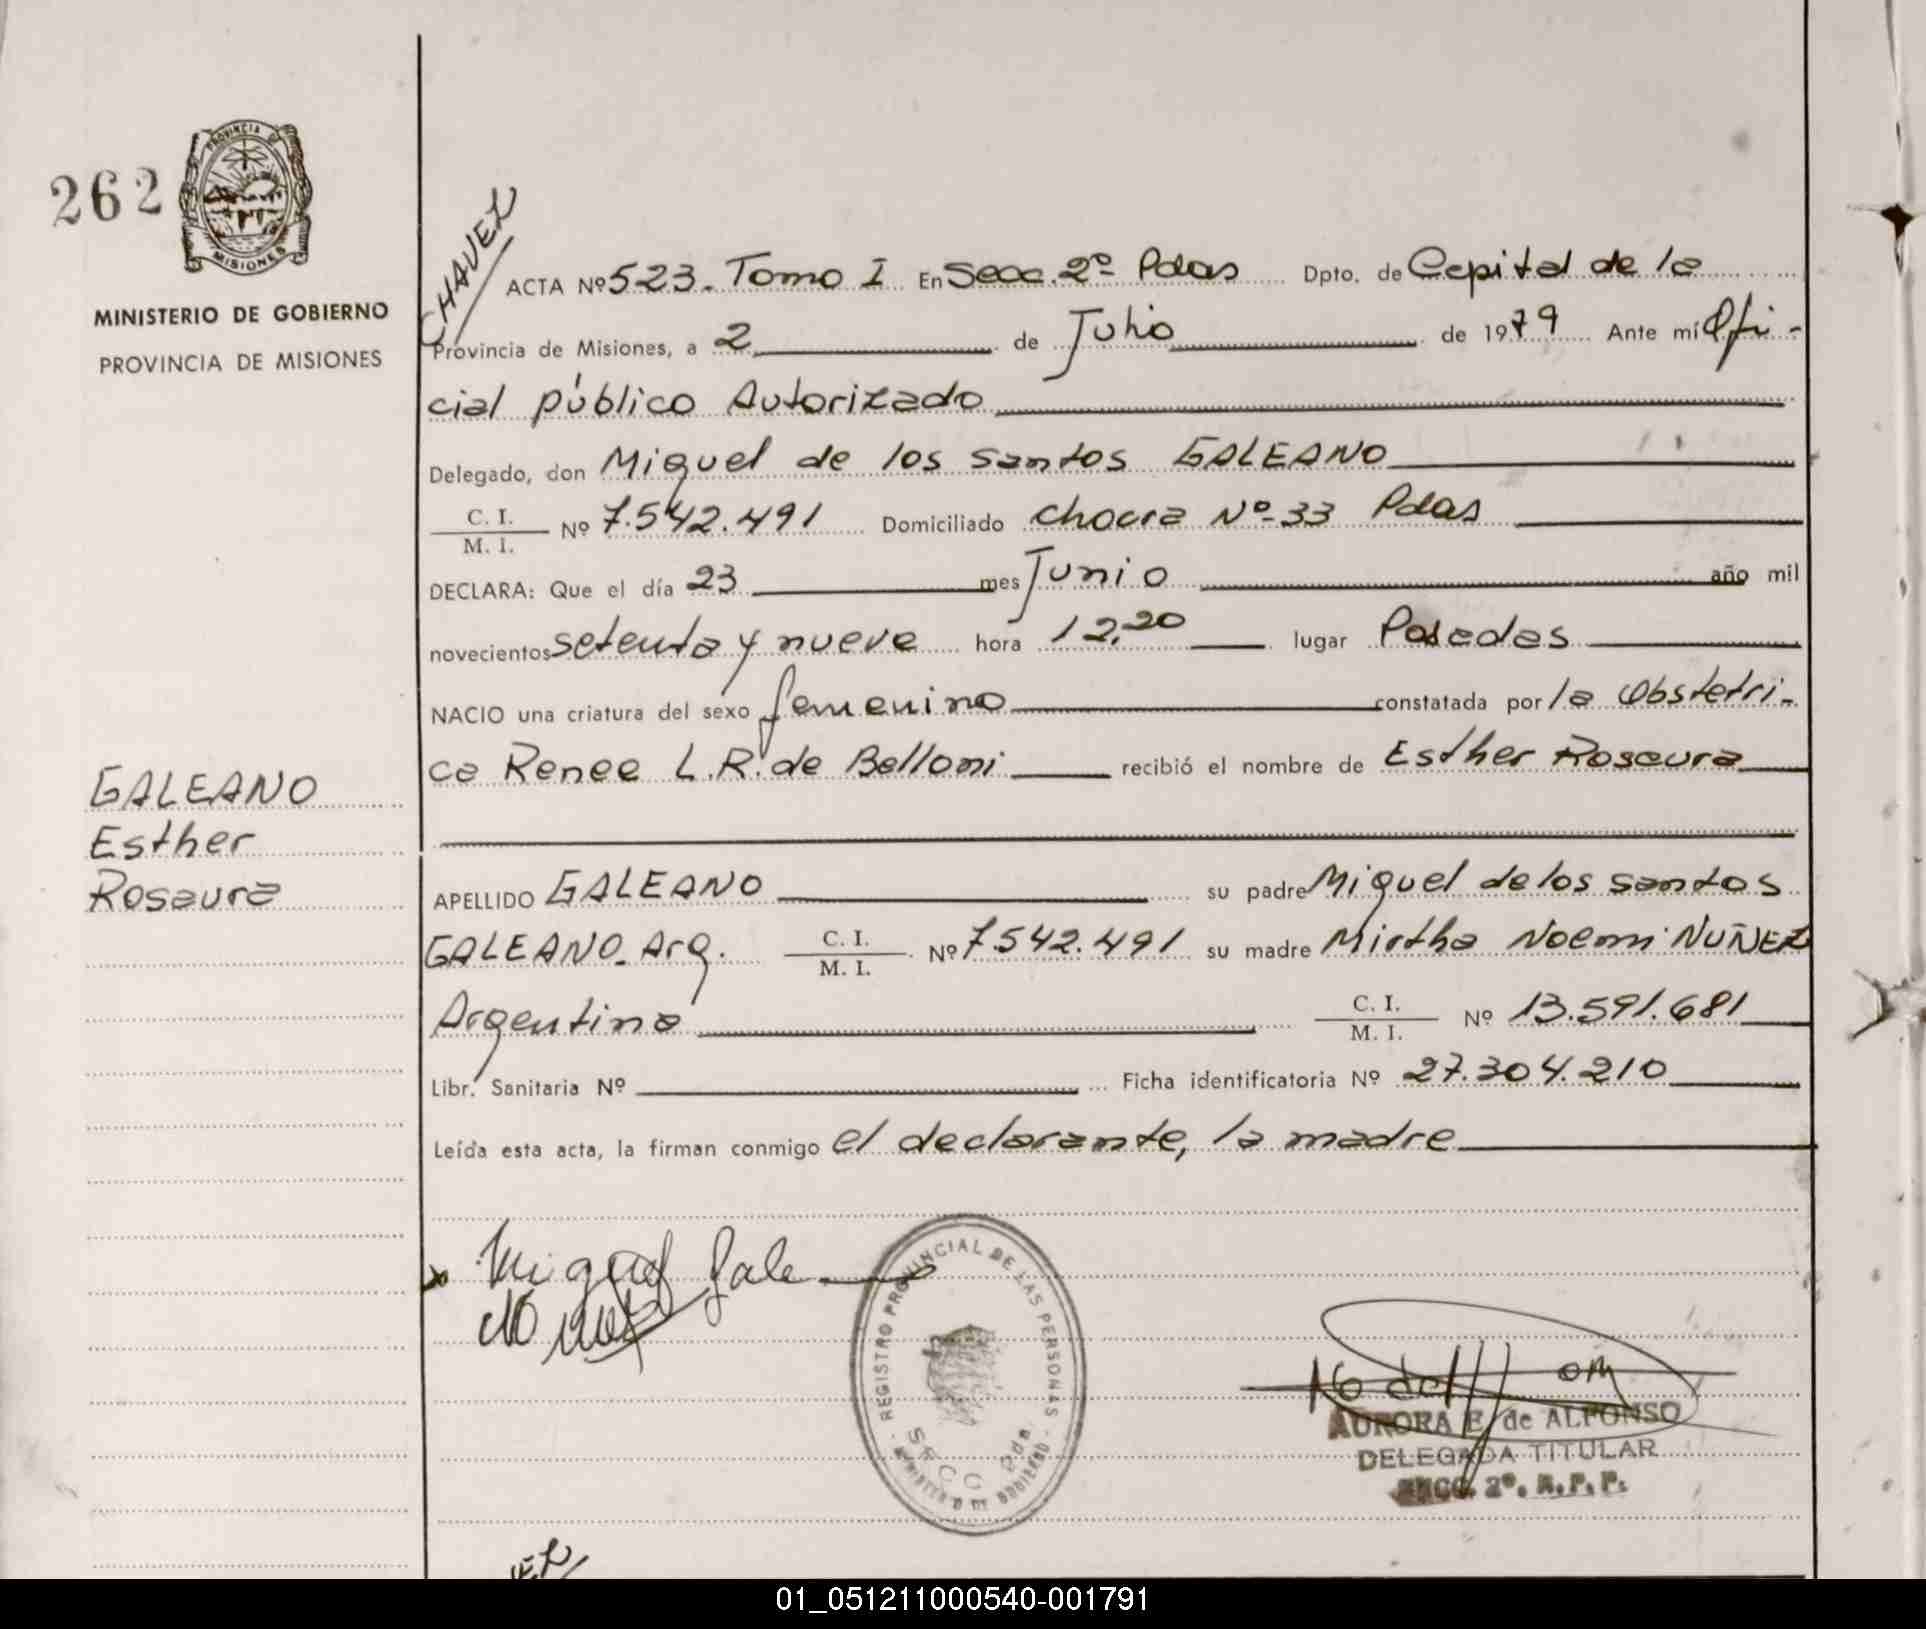 262
PROVINCIA DE
MISIONES
MINISTERIO DE GOBIERNO
PROVINCIA DE MISIONES
GALEANO
Esther
Rosaura
CHAVEZ
ACTA Nº 523. Tomo I En Secc. 2º Pdas Dpto. de Capital de la
Provincia de Misiones, a 2 de Julio de 1979 Ante mí Ofi-
cial público Autorizado
Delegado, don Miguel de los santos GALEANO
C. I.
M. I. Nº 7.542.491 Domiciliado Nº 33 Pdas
DECLARA: Que el día 23 mes Junio año mil
novecientos setenta y nueve hora 12,20 lugar Posadas
NACIO una criatura del sexo femenino constatada por la Obstetri-
ca Renee L.R. de Belloni recibió el nombre de Esther Rosaura
APELLIDO GALEANO su padre Miguel de los santos
GALEANO_Arg. C. I.
M. I. Nº 7.542.491 su madre Mirtha Noemi NUÑEZ
Argentina C. I.
M. I. Nº 13.591.681
Libr. Sanitaria Nº Ficha identificatoria Nº 27.304.210
Leída esta acta, la firman conmigo el declarante, la madre
Miguel Gale
REGISTRO PROVINCIAL DE LAS PERSONAS
SECC 2da.
MINISTERIO DE GOBIERNO
AURORA E. de ALFONSO
DELEGADA TITULAR
SECC. 2º. R. P. P.
01_051211000540-001791